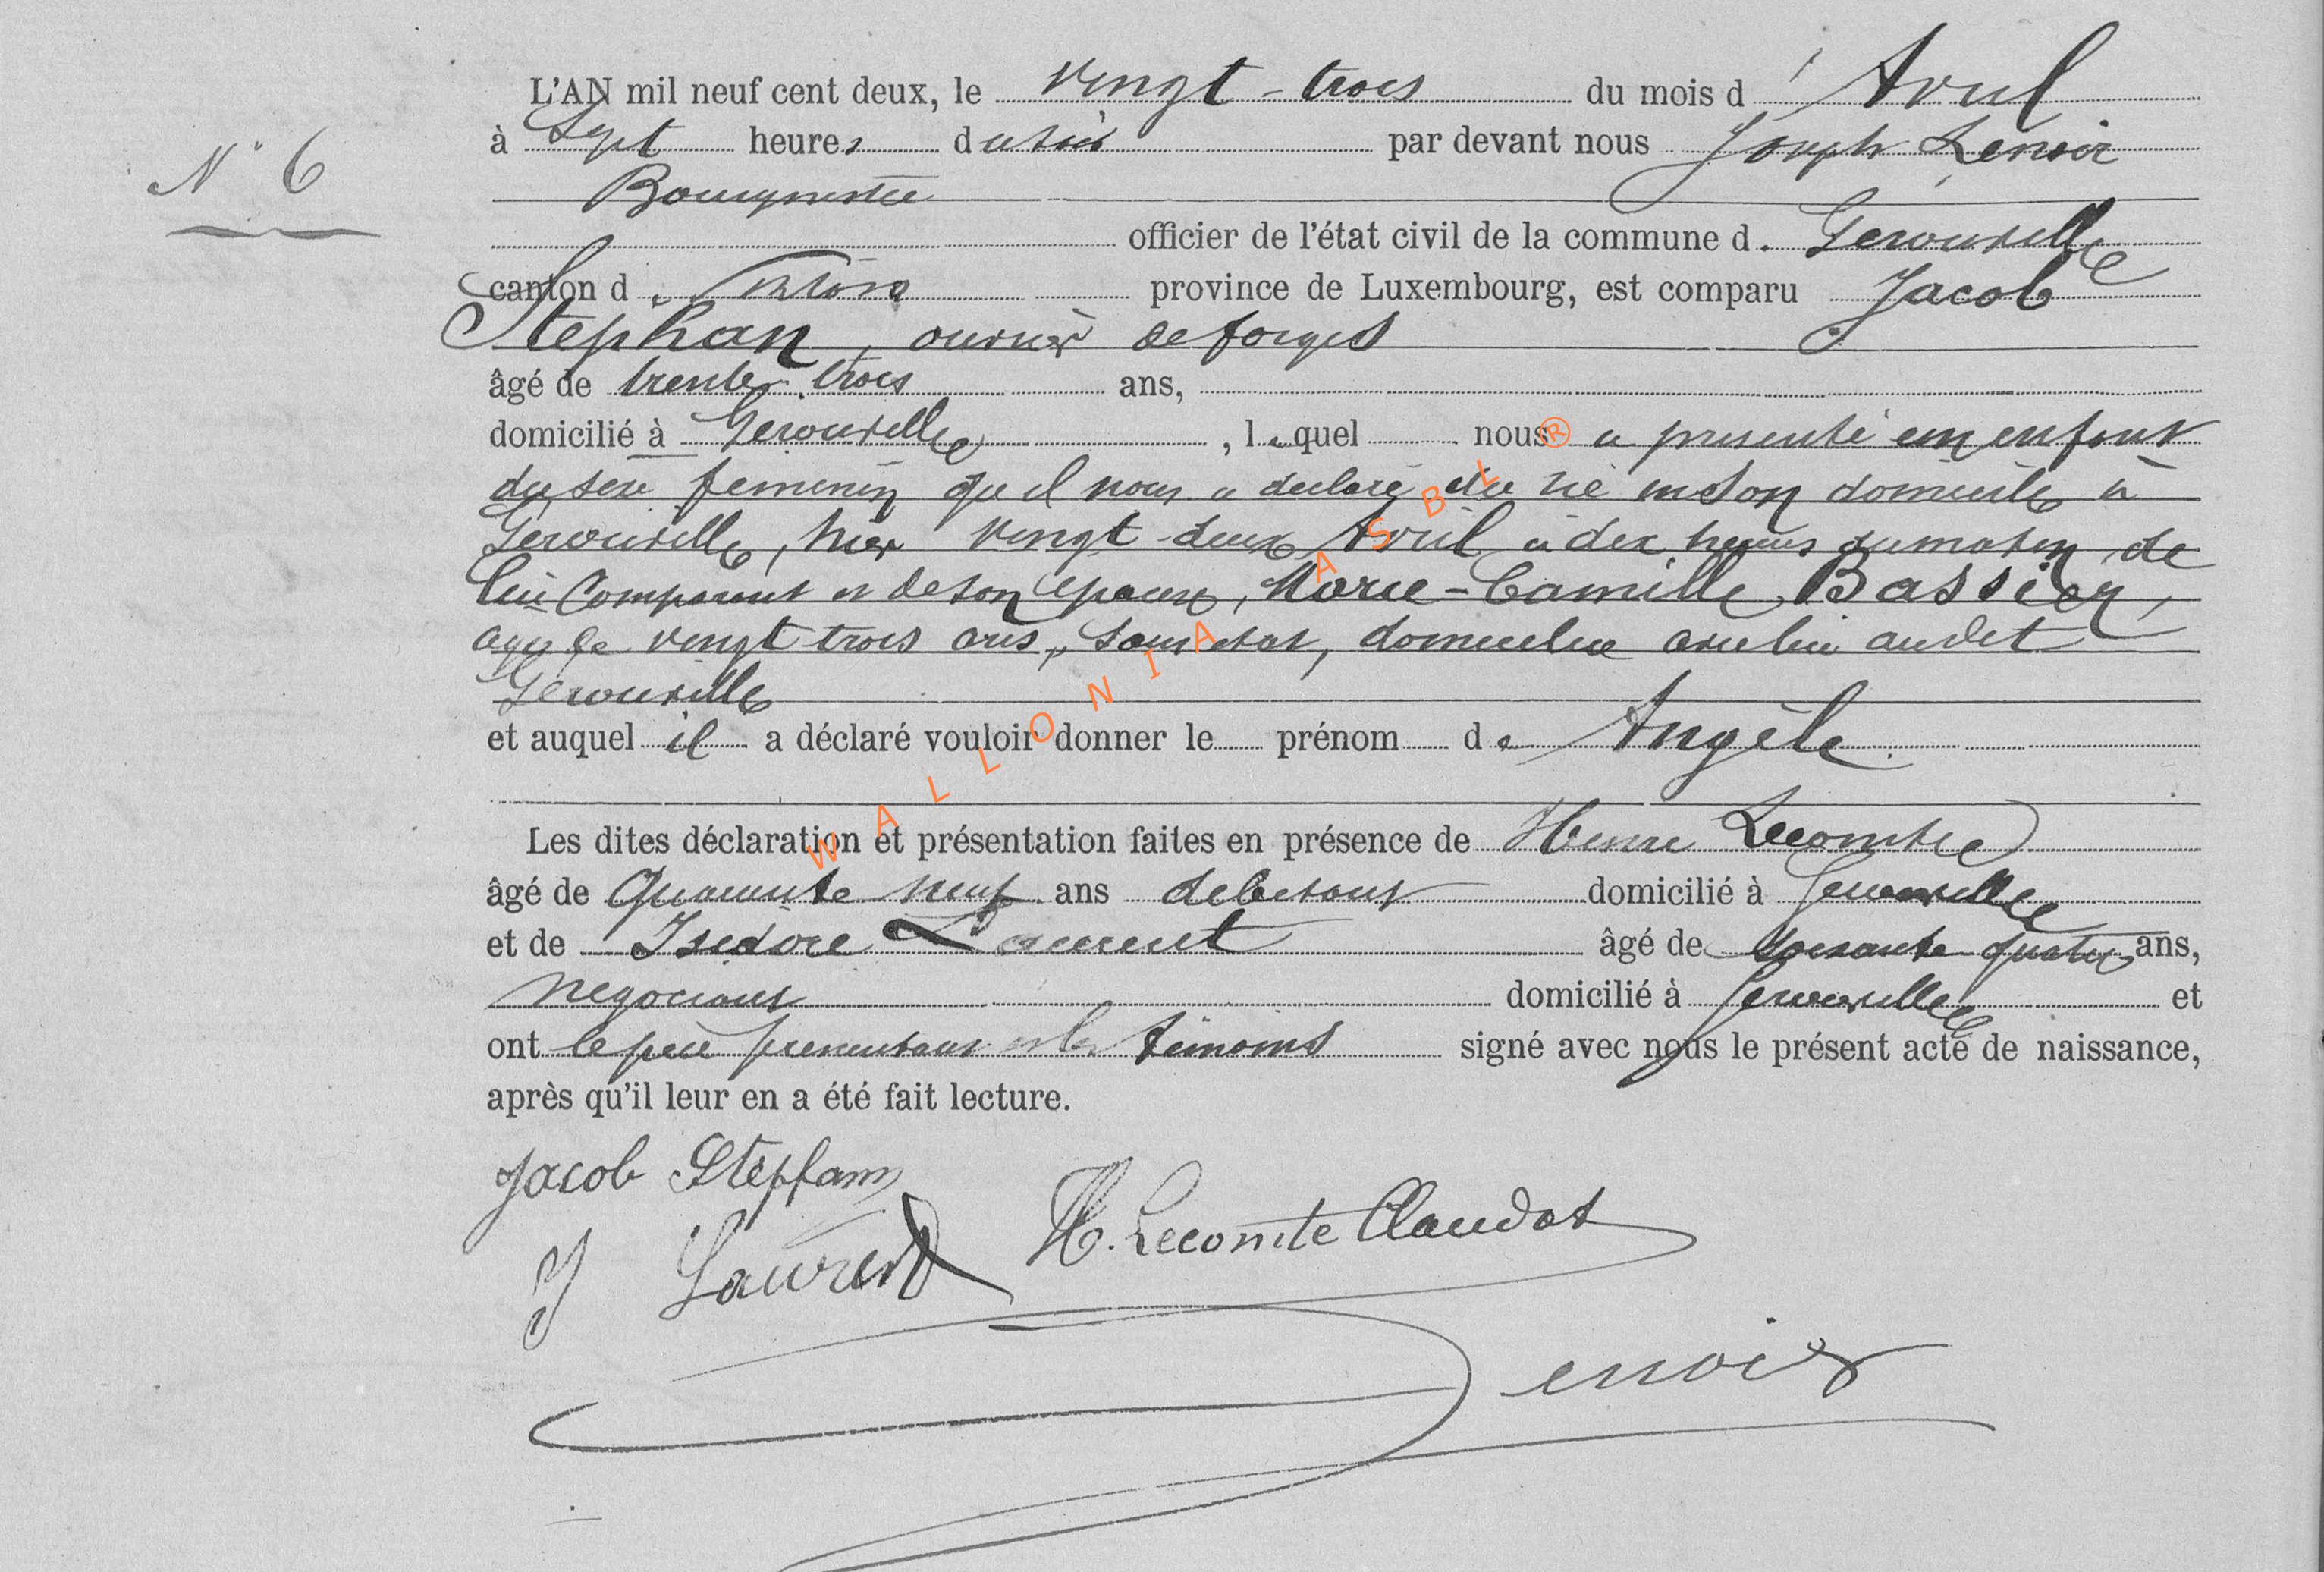 L'AN mil neuf cent deux, le vingt-trois du mois d'Avril
à Sept heures du soir par devant nous Joseph Lenoir
N° 6
Bourgmestre
officier de l'état civil de la commune de Gérouville
canton de Virton province de Luxembourg, est comparu Jacob
Stéphan, ouvrier de forges
âgé de trente trois ans,
domicilié à Gérouville, lequel nous a présenté un enfant
du sexe féminin qu'il nous a déclaré être né en son domicile à
Gérouville, hier vingt-deux Avril à dix heures du matin, de
lui Comparant et de son épouse, Marie-Camille Bassien,
agée de vingt trois ans, sans état, domiciliée avec lui audit
Gérouville
et auquel il a déclaré vouloir donner le prénom de Angèle.
Les dites déclaration et présentation faites en présence de Henri Lecomte
âgé de Quarante neuf ans débitant domicilié à Gérouville
et de Isidore Laurent âgé de soixante quatre ans,
négociant domicilié à Gérouville et
ont le père présentant et les témoins signé avec nous le présent acte de naissance,
après qu'il leur en a été fait lecture.
Jacob Stépfann
J Laurent H. Lecomte Claudot
Lenoir
WALLONIA ASBL ®